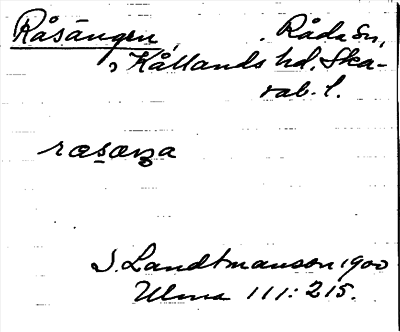 Råsängen, Råda Sn,
Kållands hd, Ska-
rab. l.
S. Landtmanson 1900
Ulma 111: 215.